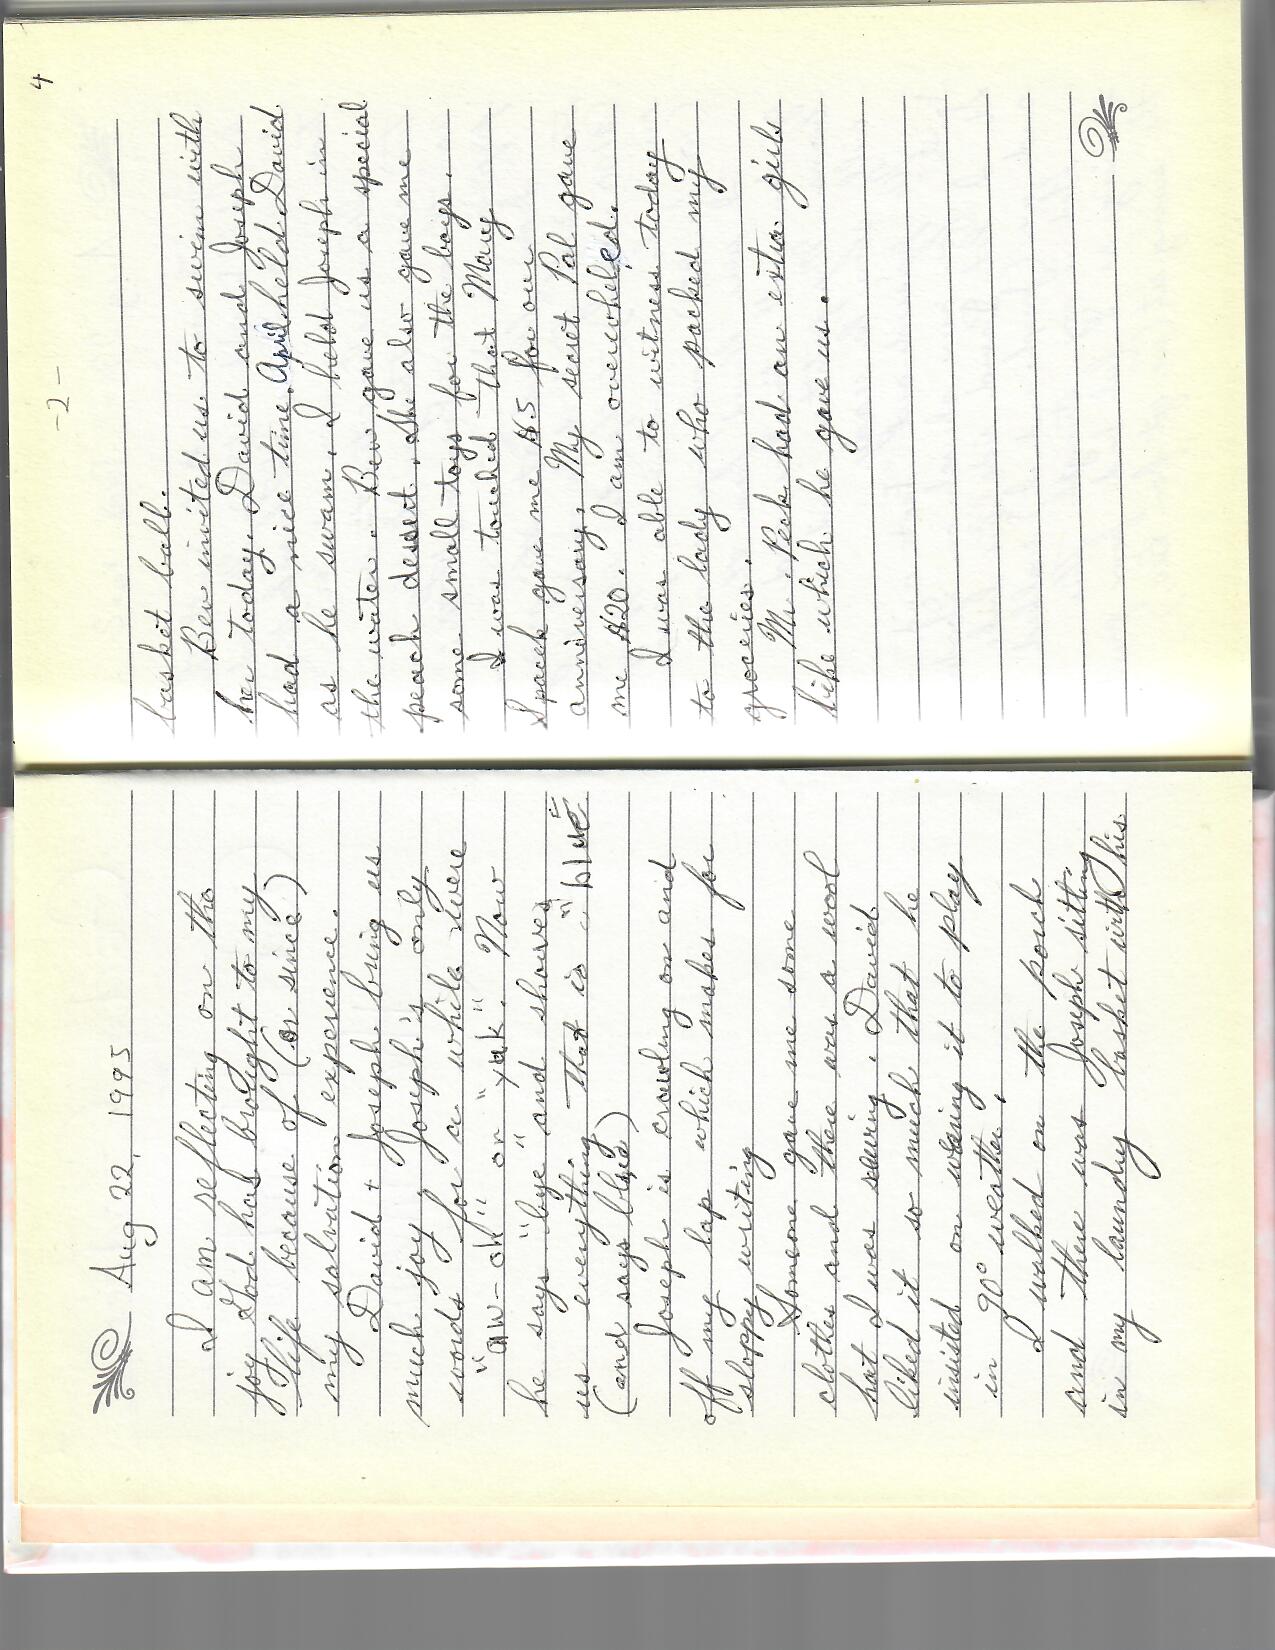 Aug 22, 1995
I am reflecting on the
joy God has brought to my
life because of (or since)
my salvation experience.
David + Joseph bring us
much joy. Joseph's only
words for a while were
"aw-oh" or "yuk". Now
he says "bye" and shows
us everything that is "blue"
(and says blue)
Joseph is crawling on and
off my lap which makes for
sloppy writing
Someone gave me some
clothes and there was a wool
hat I was saving. David
liked it so much that he
insisted on wearing it to play
in 90° weather.
I walked on the porch
and there was Joseph sitting
in my laundry basket with his
-2-
4
basket ball.
Bev invited us to swim with
her today. David and Joseph
had a nice time. April held David
as he swam. I held Joseph in
the water. Bev gave us a special
peach desert. She also gave me
some small toys for the boys.
I was touched that Mary
Spacek gave me $5 for our
anniversary. My secret Pal gave
me $20. I am overwheled.
I was able to witness today
to the lady who packed my
groceries.
Mr. Peck had an extra girls
bike which he gave us.